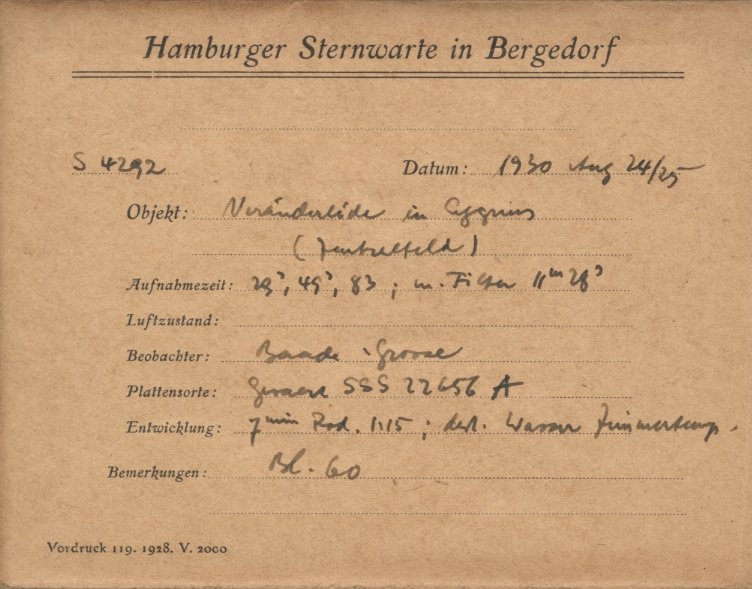 Hamburger Sternwarte in Bergedorf
S 4292 Datum: 1930 Aug 24/25
Objekt: Veränderliche in Cygnus
(Zentralfeld)
Aufnahmezeit: 29ˢ, 49ˢ, 83 ; m. Filter 11ᵐ 28ˢ
Luftzustand:
Beobachter: Baade Groose
Plattensorte: Gevaert SSS 22656 A
Entwicklung: 7 min Rod. 1:15 ; dest. Wasser Zimmertemp.
Bemerkungen: Bl. 60
Vordruck 119. 1928. V. 2000